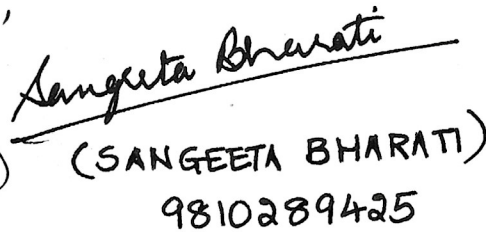 Sangeeta Bharati
(SANGEETA BHARATI)
9810289425